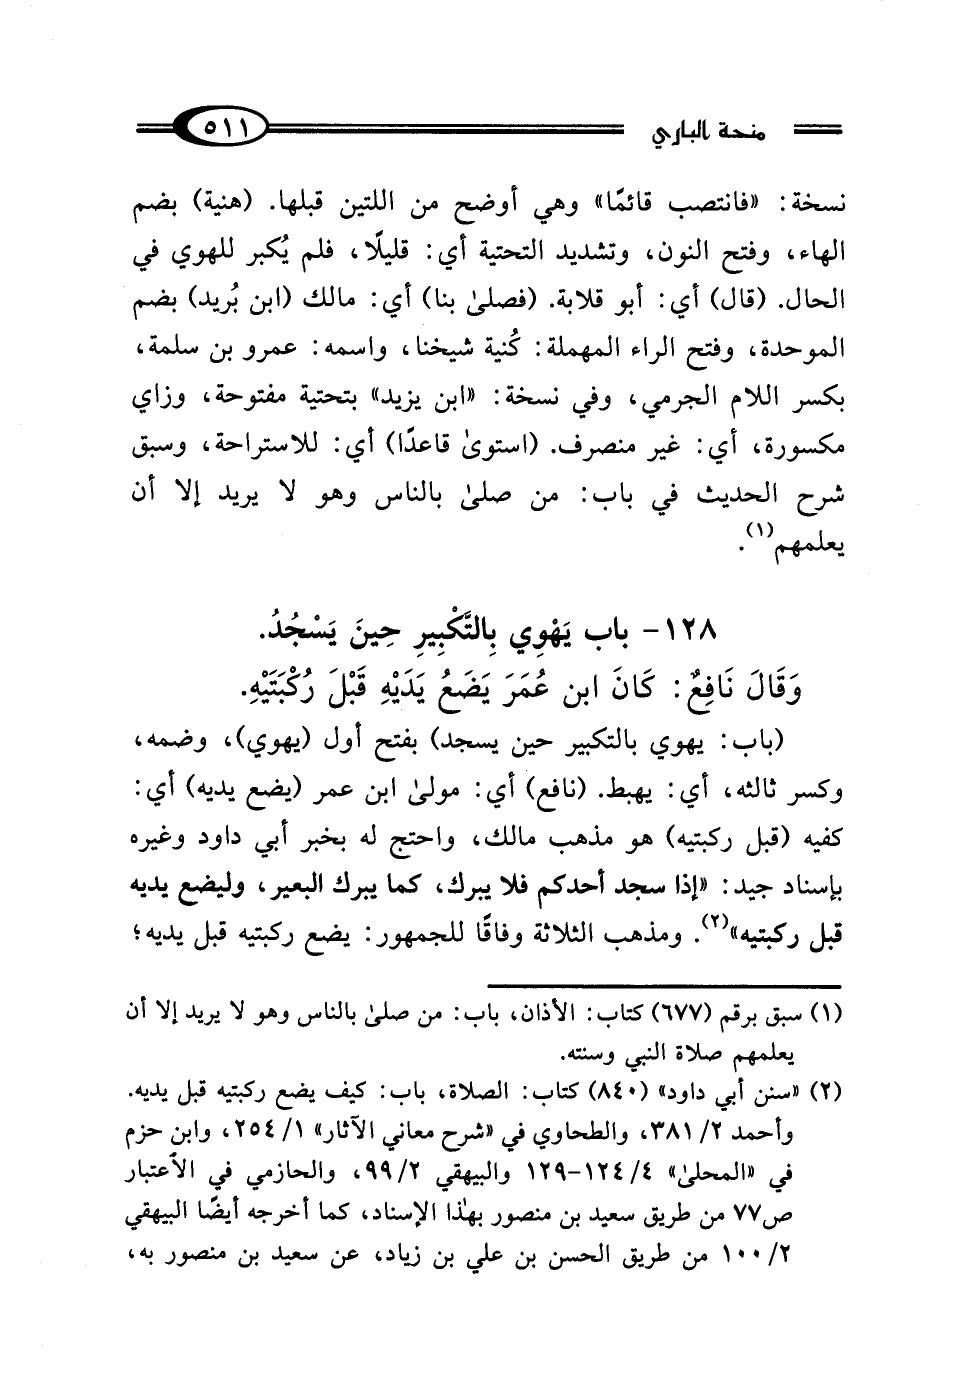 منحة الباري ٥١١
نسخة: «فانتصب قائمًا» وهي أوضح من اللتين قبلها. (هنية) بضم
الهاء، وفتح النون، وتشديد التحتية أي: قليلًا، فلم يُكبر للهوي في
الحال. (قال) أي: أبو قلابة. (فصلىٰ بنا) أي: مالك (ابن بُريد) بضم
الموحدة، وفتح الراء المهملة: كُنية شيخنا، واسمه: عمرو بن سلمة،
بكسر اللام الجرمي، وفي نسخة: «ابن يزيد» بتحتية مفتوحة، وزاي
مكسورة، أي: غير منصرف. (استوىٰ قاعدًا) أي: للاستراحة، وسبق
شرح الحديث في باب: من صلىٰ بالناس وهو لا يريد إلا أن
يعلمهم(١).
١٢٨- باب يَهْوِي بِالتَّكْبِيرِ حِينَ يَسْجُدُ.
وَقَالَ نَافِعٌ: كَانَ ابن عُمَرَ يَضَعُ يَدَيْهِ قَبْلَ رُكْبَتَيْهِ.
(باب: يهوي بالتكبير حين يسجد) بفتح أول (يهوي)، وضمه،
وكسر ثالثه، أي: يهبط. (نافع) أي: مولىٰ ابن عمر (يضع يديه) أي:
كفيه (قبل ركبتيه) هو مذهب مالك، واحتج له بخبر أبي داود وغيره
بإسناد جيد: «إذا سجد أحدكم فلا يبرك، كما يبرك البعير، وليضع يديه
قبل ركبتيه»(٢). ومذهب الثلاثة وفاقًا للجمهور: يضع ركبتيه قبل يديه؛
(١) سبق برقم (٦٧٧) كتاب: الأذان، باب: من صلىٰ بالناس وهو لا يريد إلا أن
يعلمهم صلاة النبي وسنته.
(٢) «سنن أبي داود» (٨٤٠) كتاب: الصلاة، باب: كيف يضع ركبتيه قبل يديه.
وأحمد ٢/ ٣٨١، والطحاوي في «شرح معاني الآثار» ١/ ٢٥٤، وابن حزم
في «المحلىٰ» ٤/ ١٢٤-١٢٩ والبيهقي ٢/ ٩٩، والحازمي في الأعتبار
ص٧٧ من طريق سعيد بن منصور بهٰذا الإسناد، كما أخرجه أيضًا البيهقي
٢/ ١٠٠ من طريق الحسن بن علي بن زياد، عن سعيد بن منصور به،